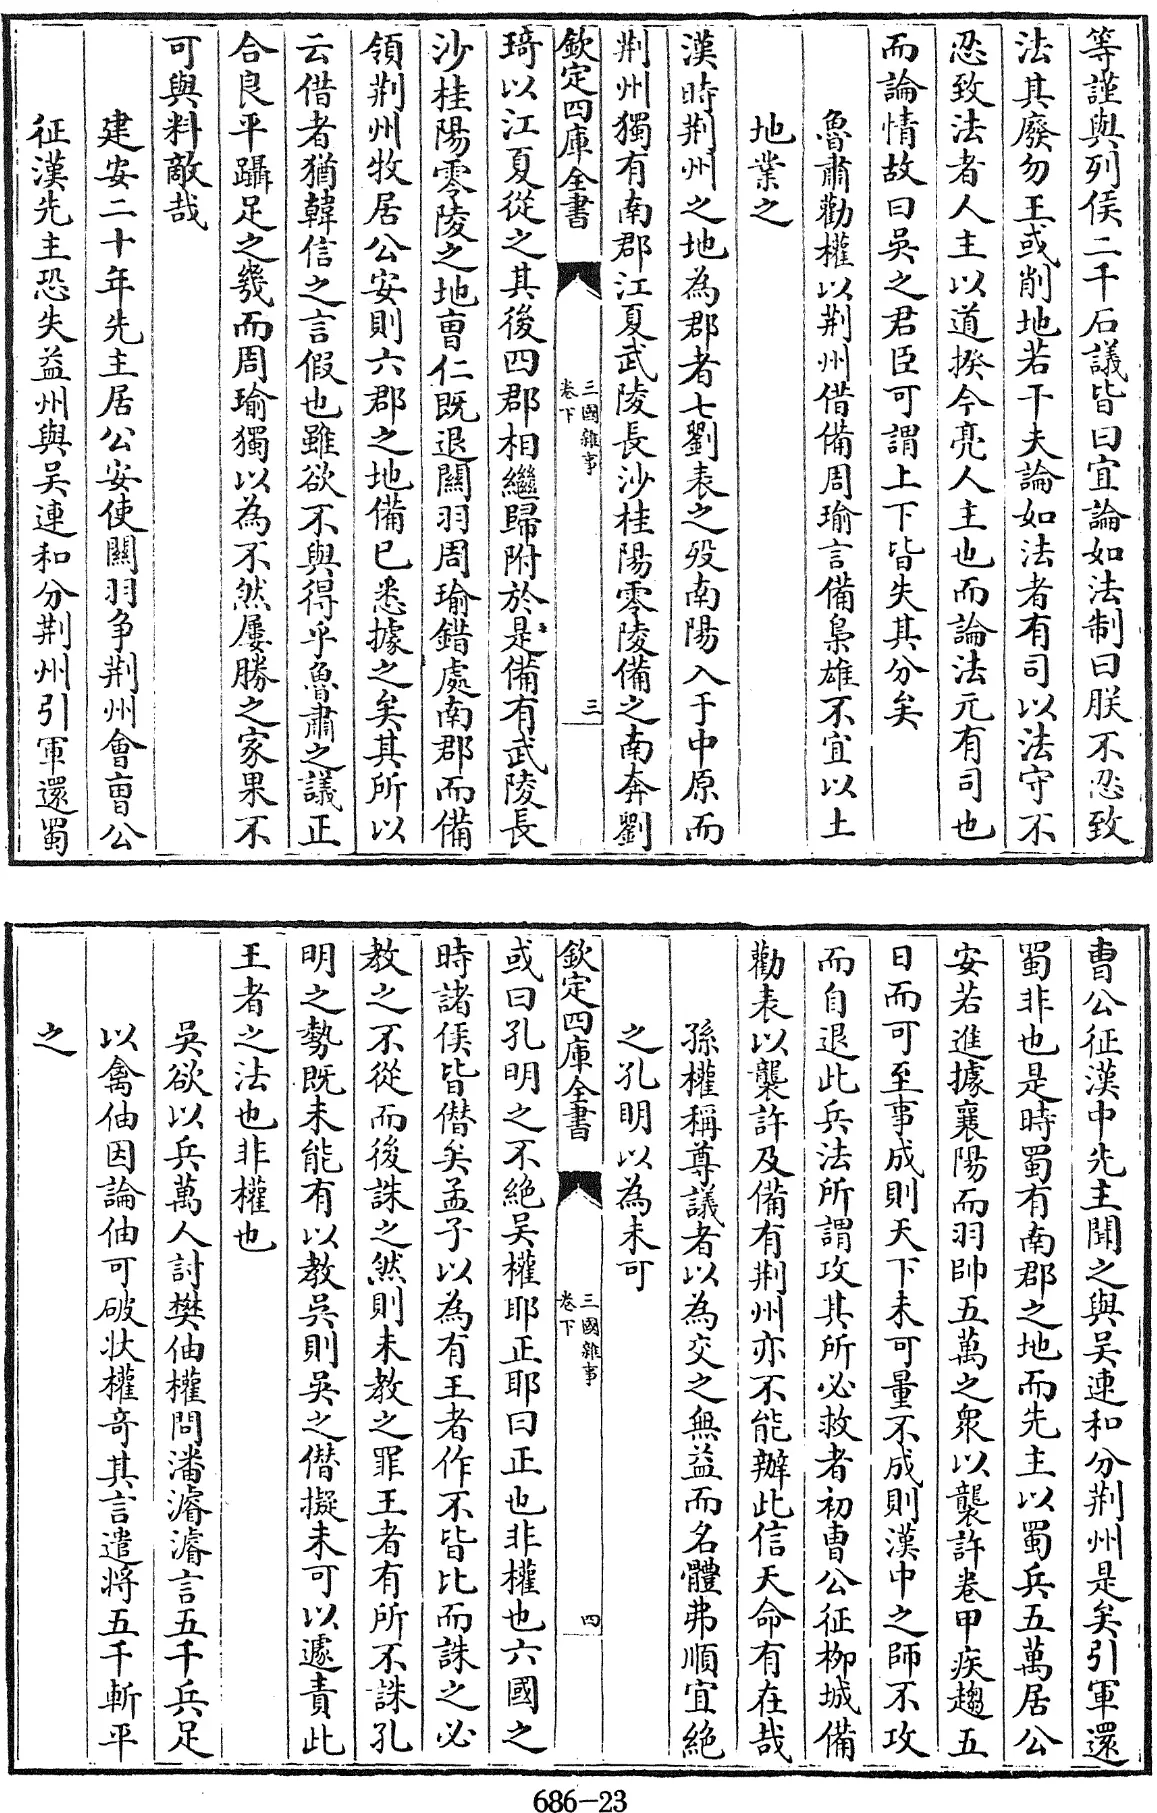 等謹與列侯二千石議皆曰宜論如法制曰朕不忍致
法其廢勿王或削地若干夫論如法者有司以法守不
忍致法者人主以道揆今亮人主也而論法元有司也
而論情故曰吳之君臣可謂上下皆失其分矣
魯肅勸權以荆州借備周瑜言備梟雄不宜以土
地業之
漢時荆州之地為郡者七劉表之歿南陽入于中原而
荆州獨有南郡江夏武陵長沙桂陽零陵備之南奔劉
欽定四庫全書
三國雜事
卷下
三
琦以江夏從之其後四郡相繼歸附於是備有武陵長
沙桂陽零陵之地曹仁既退關羽周瑜錯處南郡而備
領荆州牧居公安則六郡之地備已悉據之矣其所以
云借者猶韓信之言假也雖欲不與得乎魯肅之議正
合良平躡足之幾而周瑜獨以為不然屢勝之家果不
可與料敵哉
建安二十年先主居公安使關羽争荆州會曹公
征漢先主恐失益州與吴連和分荆州引軍還蜀
曹公征漢中先主聞之與吴連和分荆州是矣引軍還
蜀非也是時蜀有南郡之地而先主以蜀兵五萬居公
安若進據襄陽而羽帥五萬之衆以襲許卷甲疾趨五
日而可至事成則天下未可量不成則漢中之師不攻
而自退此兵法所謂攻其所必救者初曹公征柳城備
勸表以襲許及備有荆州亦不能辦此信天命有在哉
孫權稱尊議者以為交之無益而名體弗順宜絶
之孔明以為未可
欽定四庫全書
三國雜事
卷下
四
或曰孔明之不絶吴權耶正耶曰正也非權也六國之
時諸侯皆僭矣孟子以為有王者作不皆比而誅之必
教之不從而後誅之然則未教之罪王者有所不誅孔
明之勢既未能有以教吳則吳之僭擬未可以遽責此
王者之法也非權也
吳欲以兵萬人討樊伷權問潘濬濬言五千兵足
以禽伷因論伷可破状權奇其言遣将五千斬平
之
686-23